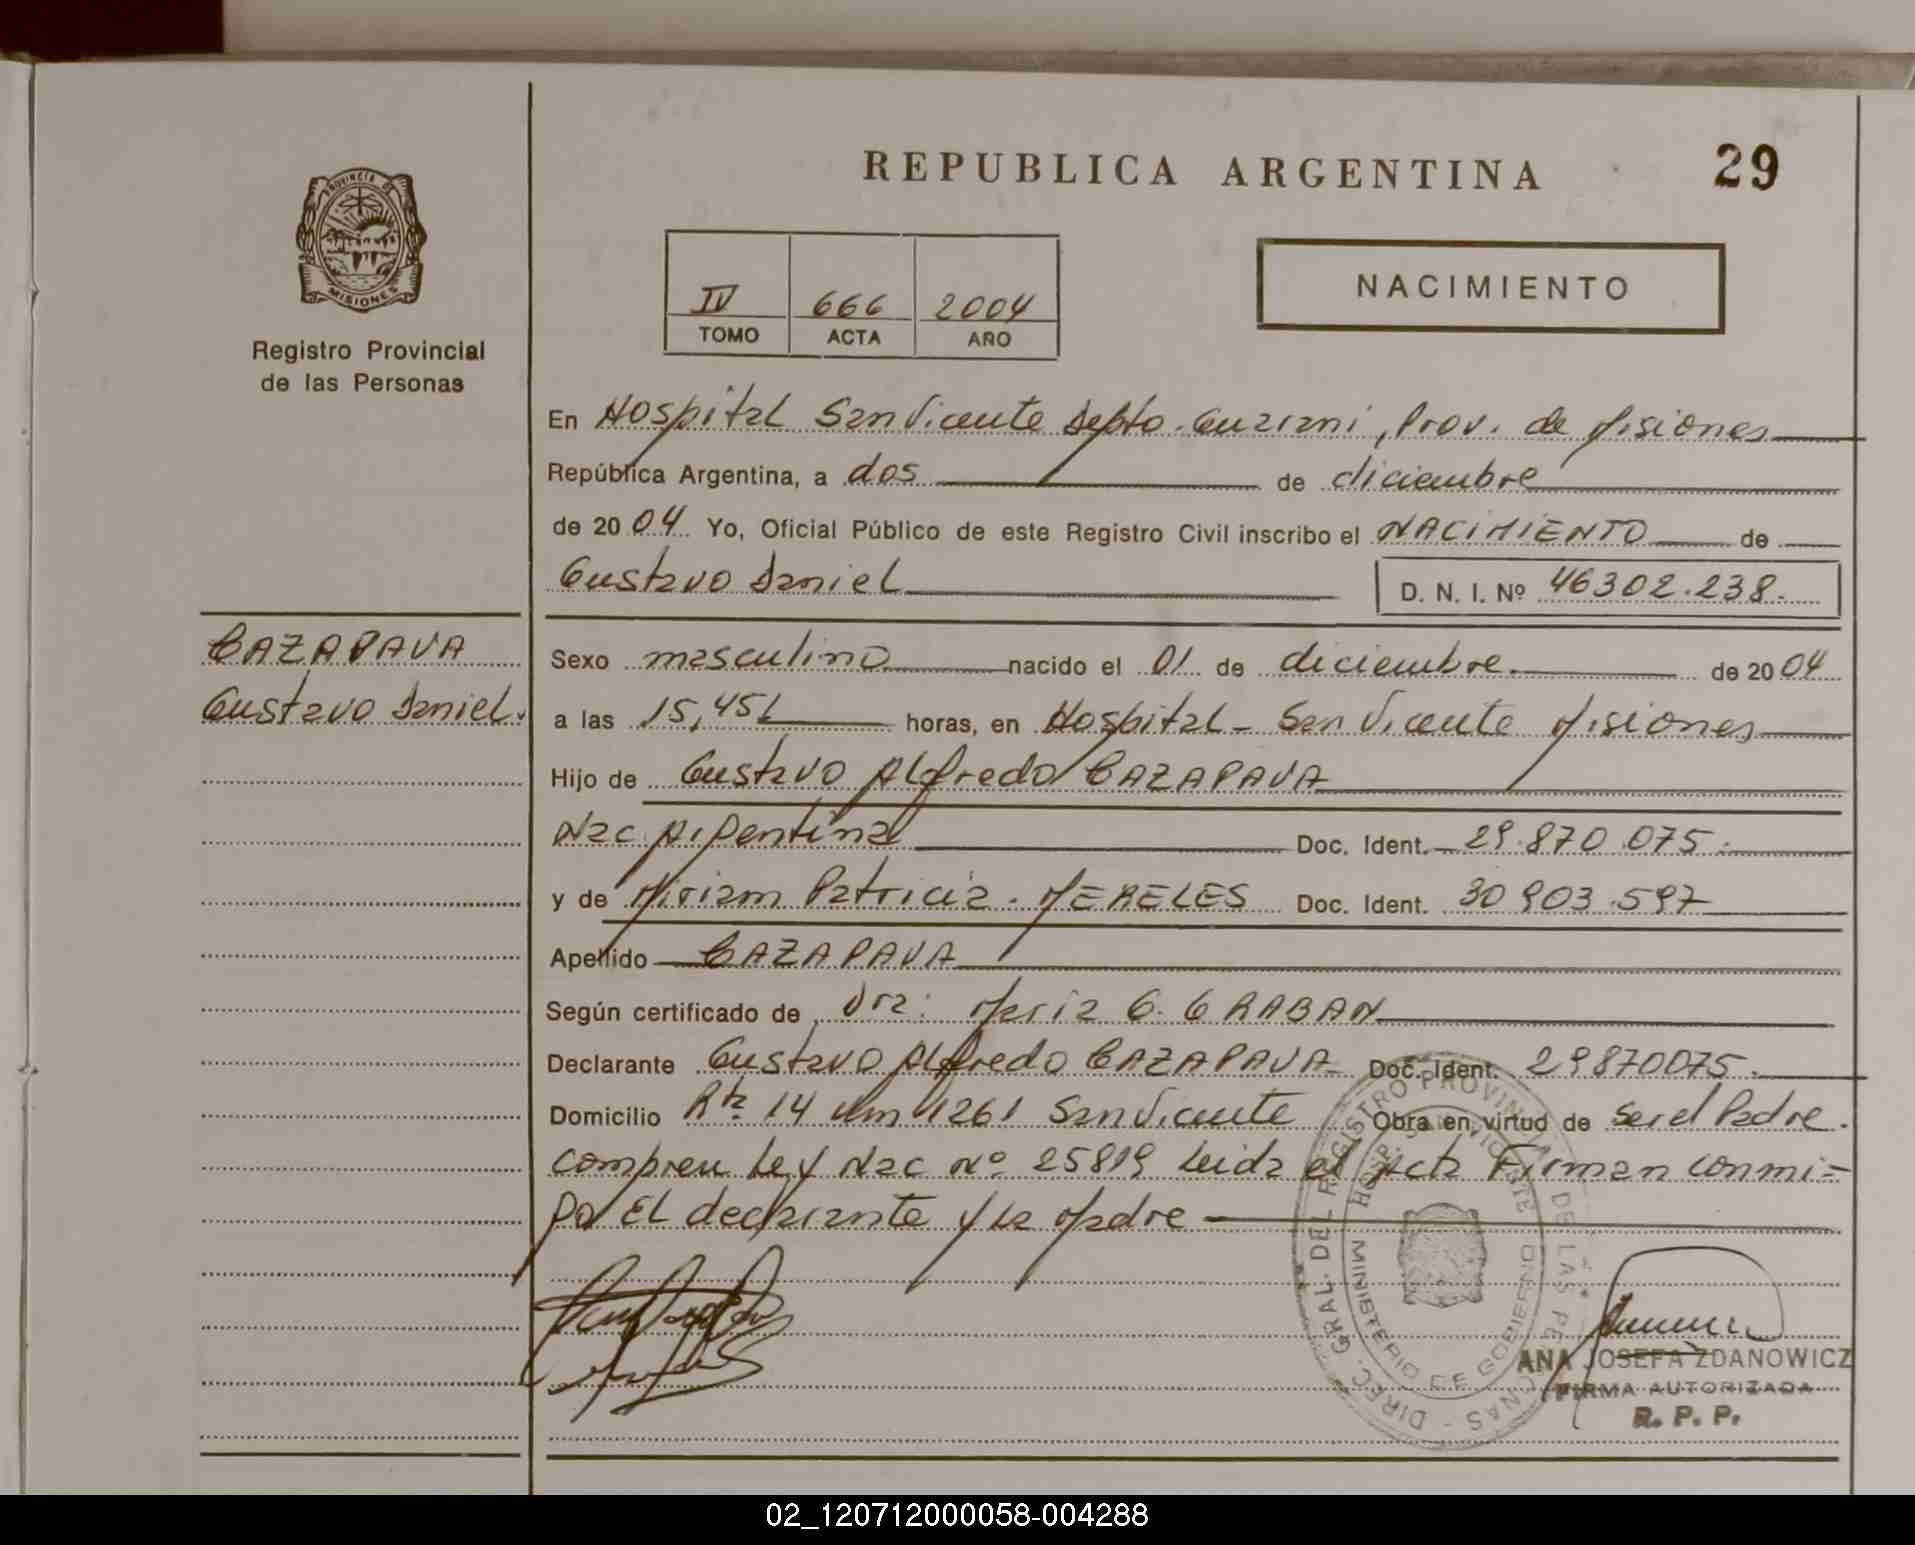 REPUBLICA ARGENTINA
29
PROVINCIA DE
MISIONES
Registro Provincial
de las Personas
IV 666 2004
TOMO ACTA AÑO
NACIMIENTO
En Hospital San Vicente Depto. Guarani, Prov. de Misiones
República Argentina, a dos de diciembre
de 2004 Yo, Oficial Público de este Registro Civil inscribo el NACIMIENTO de
Gustavo Daniel D. N. I. Nº 46302.238.
CAZAPAVA
Gustavo Daniel.
Sexo masculino nacido el 01 de diciembre. de 2004
a las 15,45 horas, en Hospital - San Vicente Misiones
Hijo de Gustavo Alfredo CAZAPAVA
Nac. Argentina Doc. Ident. 29.870.075.
y de Miriam Patricia. MERELES Doc. Ident. 30903.597
Apellido CAZAPAVA
Según certificado de Dra: Maria G. GRABAN
Declarante Gustavo Alfredo CAZAPAVA Doc. Ident. 29870075.
Domicilio Rta 14 Km 1261 San Vicente Obra en virtud de ser el Padre.
Ley Nac Nº 25819 Leida el Acta Firman conmi=
go El declarante y la Madre
DIREC. GRAL. DEL REGISTRO PROVINCIAL DE LAS PERSONAS
MINISTERIO DE GOBIERNO
HOSP. SAN VICENTE
ANA JOSEFA ZDANOWICZ
FIRMA AUTORIZADA
R. P. P.
02_120712000058-004288